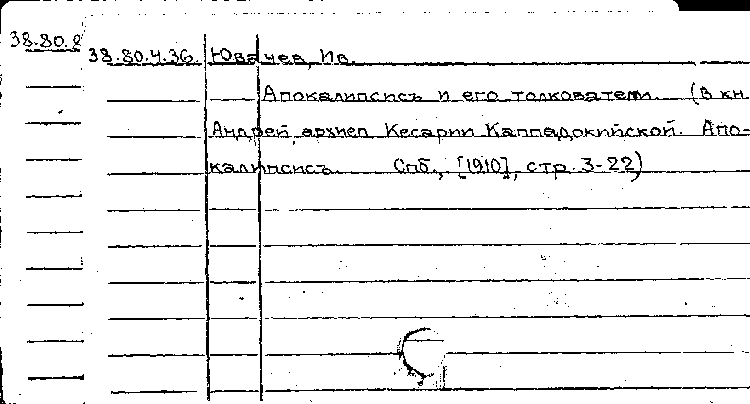 38.80.2
38.80.4.36. Ювачев, Ив.
Апокалипсисъ и его толкователи. (В кн
Андрей, архиеп Кесарии Каппадокийской. Апо-
калипсисъ. Спб., [1910], стр. 3-22)